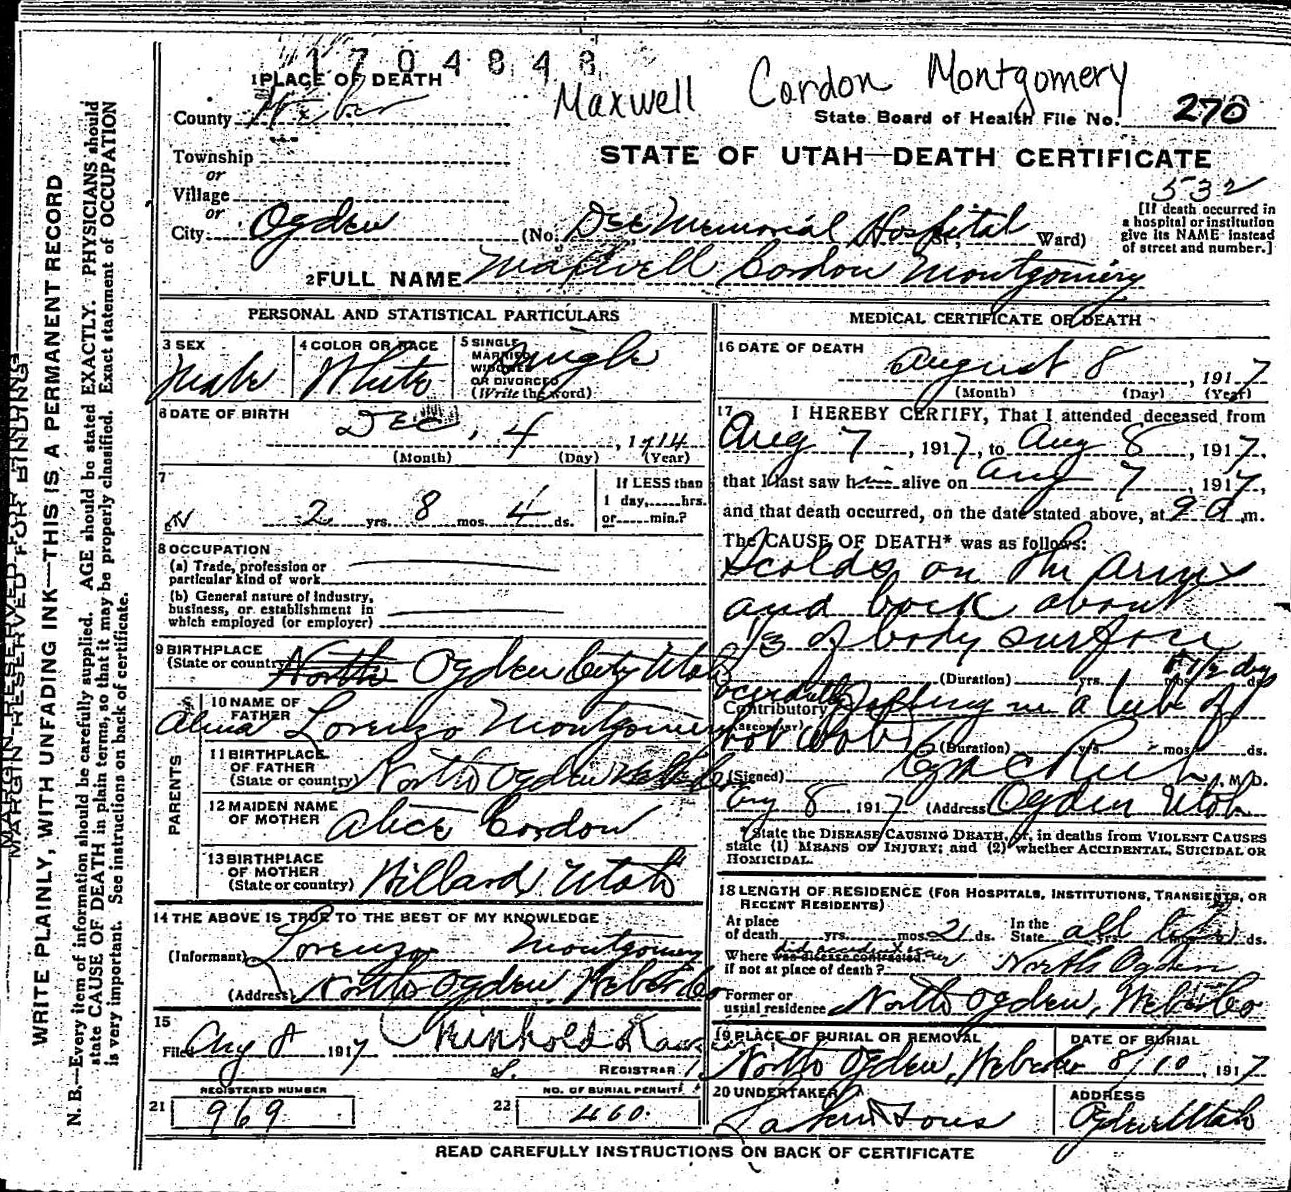 1704848
Maxwell Cordon Montgomery
1 PLACE OF DEATH
County Weber
State Board of Health File No. 270
Township
or
STATE OF UTAH—DEATH CERTIFICATE
Village
or
532
City Ogden (No. Dee Memorial Hospital St.; Ward)
[If death occurred in
a hospital or institution
give its NAME instead
of street and number.]
2 FULL NAME Maxwell Cordon Montgomery
PERSONAL AND STATISTICAL PARTICULARS
3 SEX
Male
4 COLOR OR RACE
White
5 SINGLE
MARRIED
WIDOWED
OR DIVORCED
(Write the word)
Single
6 DATE OF BIRTH
Dec, 4, 1914
(Month) (Day) (Year)
7
2 yrs. 8 mos. 4 ds.
If LESS than
1 day,......hrs.
or......min.?
8 OCCUPATION
(a) Trade, profession or
particular kind of work
(b) General nature of industry,
business, or establishment in
which employed (or employer)
9 BIRTHPLACE
(State or country) North Ogden City Utah
PARENTS
10 NAME OF
FATHER
Alma Lorenzo Montgomery
11 BIRTHPLACE
OF FATHER
(State or country) North Ogden
12 MAIDEN NAME
OF MOTHER Alice Cordon
13 BIRTHPLACE
OF MOTHER
(State or country) Willard Utah
14 THE ABOVE IS TRUE TO THE BEST OF MY KNOWLEDGE
(Informant) Lorenzo Montgomery
(Address) North Ogden, Weber Co
15
Filed Aug 8 1917
REGISTRAR
REGISTERED NUMBER
21 969
NO. OF BURIAL PERMIT
22 460.
MEDICAL CERTIFICATE OF DEATH
16 DATE OF DEATH
August 8, 1917
(Month) (Day) (Year)
17 I HEREBY CERTIFY, That I attended deceased from
Aug 7, 1917, to Aug 8, 1917.
that I last saw him alive on Aug 7, 1917,
and that death occurred, on the date stated above, at 9 a m.
The CAUSE OF DEATH* was as follows:
Scalds on the arms
and back about
1/3 of body surface
(Duration) yrs. mos. 1/2 day ds.
Contributory accidentally falling in a tub of
(SECONDARY)
hot
(Duration) yrs. mos. ds.
(Signed) M. D.
Aug 8 1917 (Address) Ogden Utah
*State the DISEASE CAUSING DEATH, or, in deaths from VIOLENT CAUSES
state (1) MEANS OF INJURY; and (2) whether ACCIDENTAL, SUICIDAL OR
HOMICIDAL.
18 LENGTH OF RESIDENCE (FOR HOSPITALS, INSTITUTIONS, TRANSIENTS, OR
RECENT RESIDENTS)
At place
of death yrs. mos. ds.
In the
State all life yrs. mos. ds.
Where was disease contracted
did accident occur
if not at place of death? North Ogden
Former or
usual residence North Ogden, Weber Co
19 PLACE OF BURIAL OR REMOVAL
North Ogden, Weber Co
DATE OF BURIAL
8/10, 1917
20 UNDERTAKER
ADDRESS
Ogden Utah
READ CAREFULLY INSTRUCTIONS ON BACK OF CERTIFICATE
MARGIN RESERVED FOR BINDING
WRITE PLAINLY, WITH UNFADING INK—THIS IS A PERMANENT RECORD
N. B.—Every item of information should be carefully supplied. AGE should be stated EXACTLY. PHYSICIANS should
state CAUSE OF DEATH in plain terms, so that it may be properly classified. Exact statement of OCCUPATION
is very important. See instructions on back of certificate.